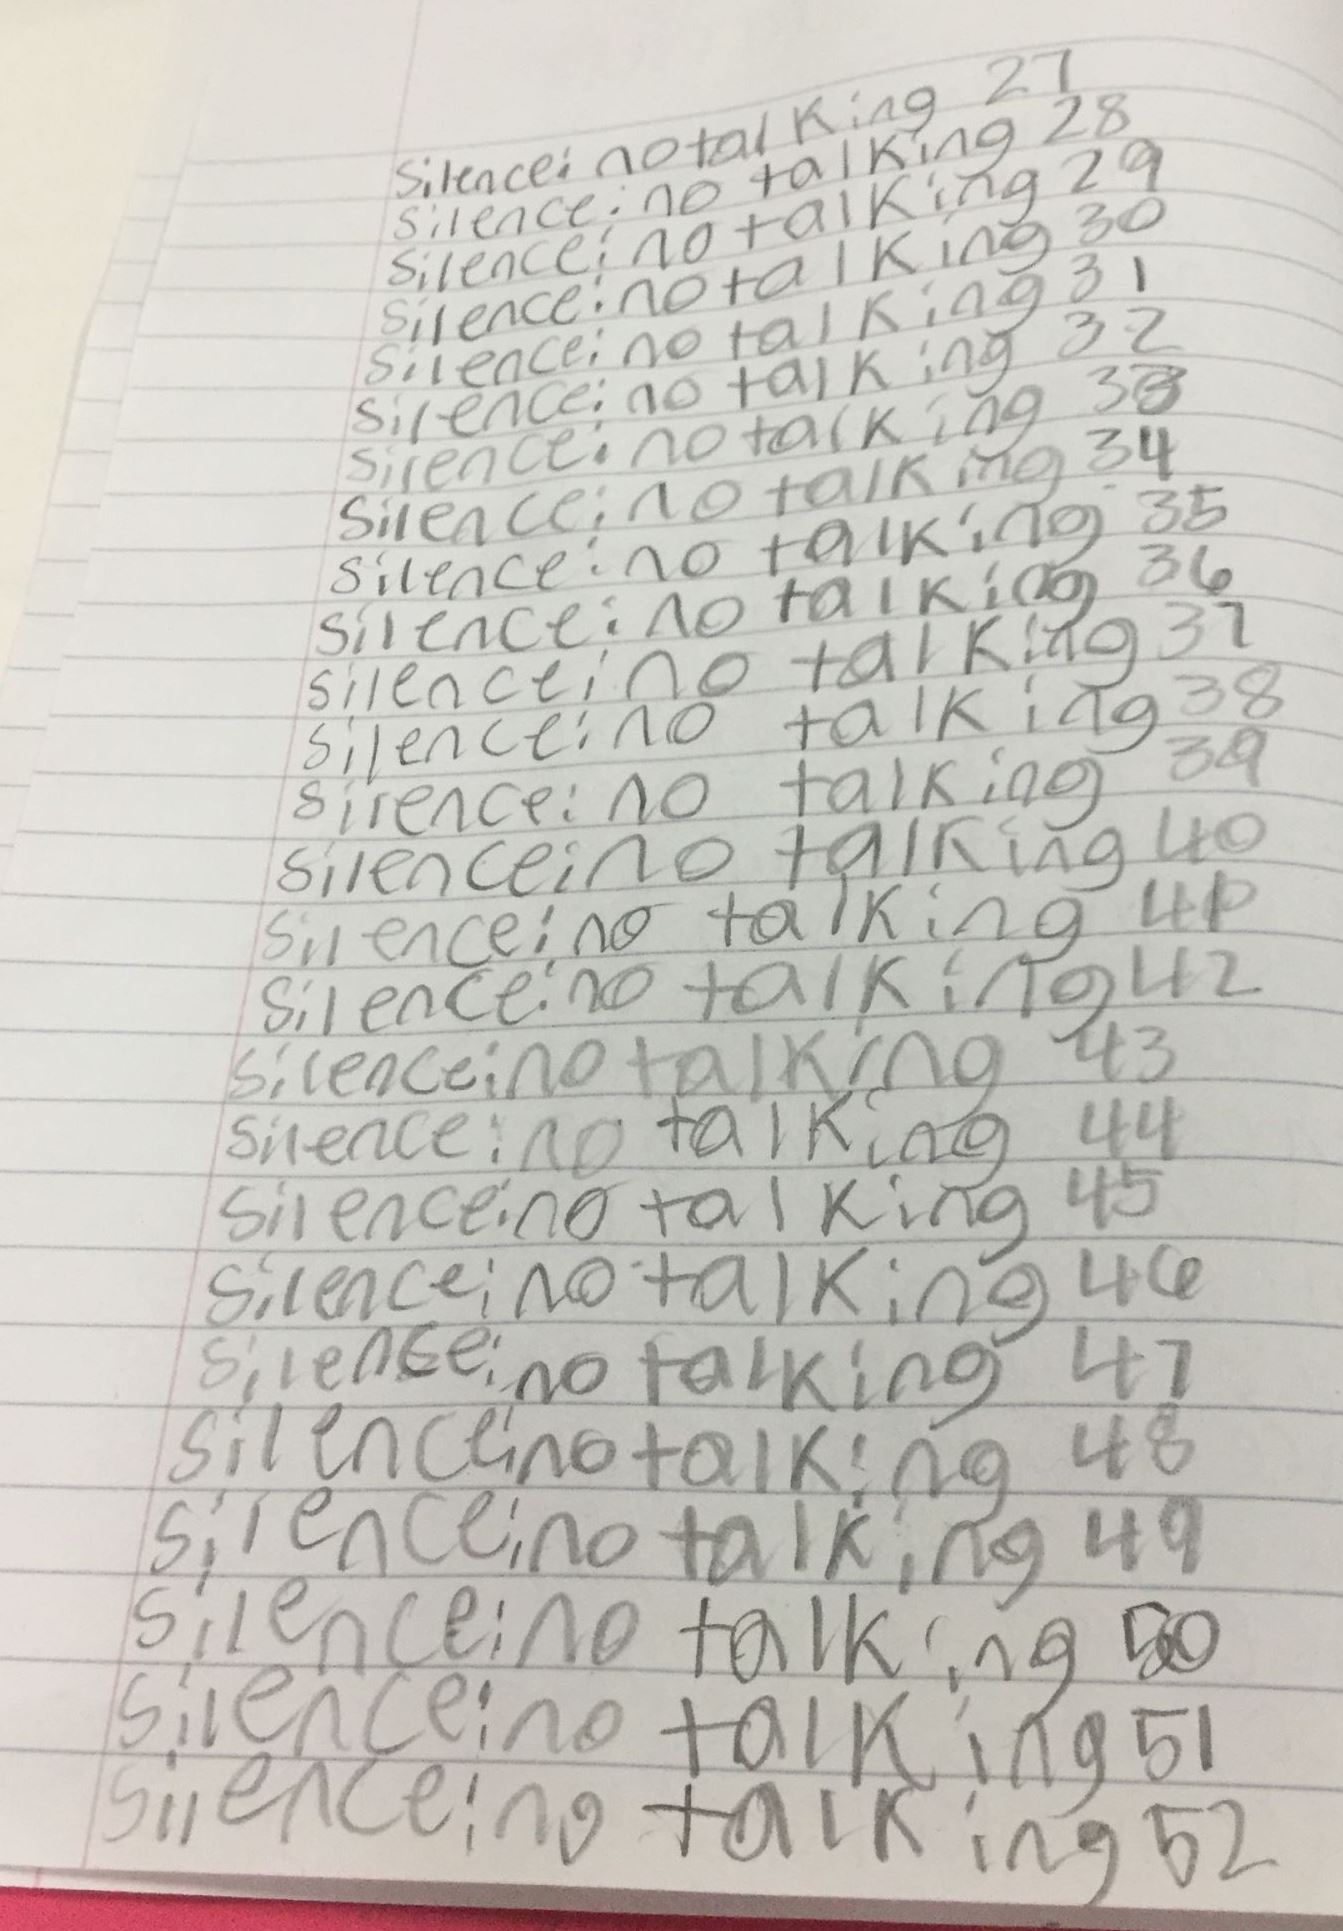 Silence: no talking 27
silence: no talking 28
silence: no talking 29
silence: no talking 30
silence: no talking 31
silence: no talking 32
silence: no talking 33
silence: no talking 34
silence: no talking 35
silence: no talking 36
silence: no talking 37
silence: no talking 38
silence: no talking 39
silence: no talking 40
silence: no talking 41
silence: no talking 42
silence: no talking 43
silence: no talking 44
silence: no talking 45
silence: no talking 46
silence: no talking 47
silence: no talking 48
silence: no talking 49
silence: no talking 50
silence: no talking 51
silence: no talking 52